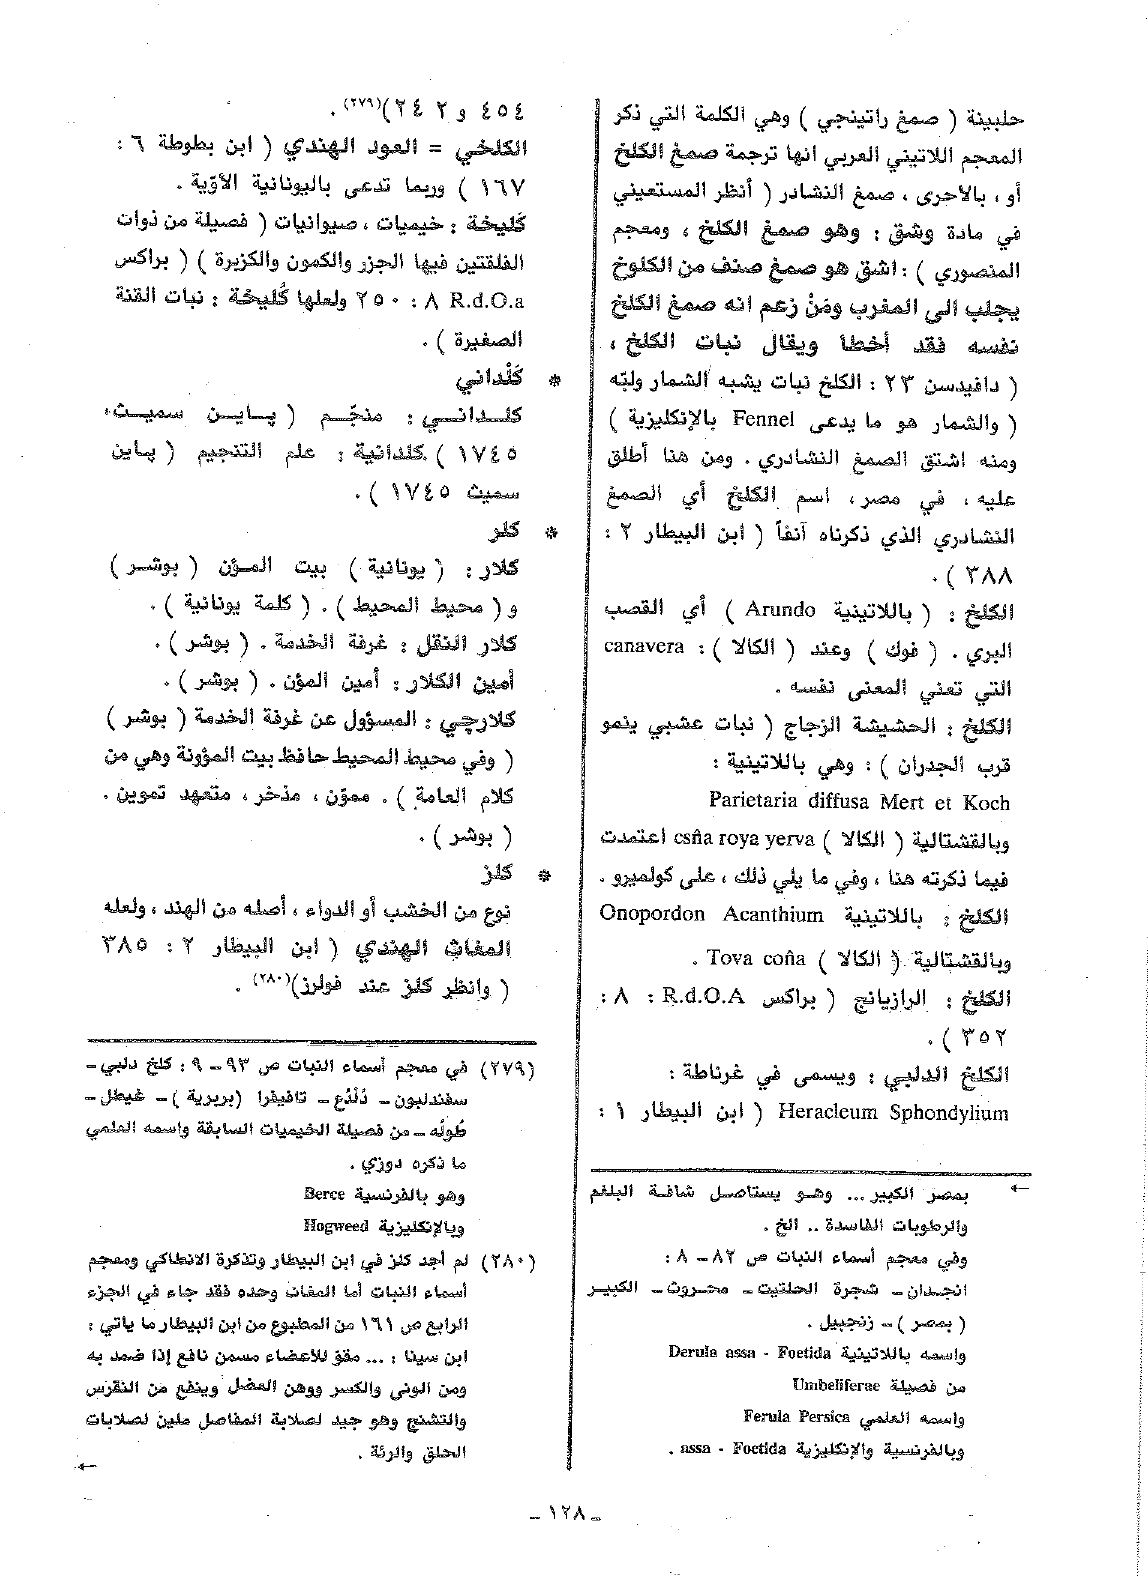 حلبينة ( صمغ راتينجي ) وهي الكلمة التي ذكر
المعجم اللاتيني العربي انها ترجمة صمغ الكلخ
أو ، بالأحرى ، صمغ النشادر ( أنظر المستعيني
في مادة وشق : وهو صمغ الكلخ ، ومعجم
المنصوري ) : اشق هو صمغ صنف من الكلوخ
يجلب الى المغرب ومَنْ زعم انه صمغ الكلخ
نفسه فقد أخطا ويقال نبات الكلخ ،
( دافيدسن ٢٣ : الكلخ نبات يشبه الشمار ولبّه
( والشمار هو ما يدعى Fennel بالإنكليزية )
ومنه اشتق الصمغ النشادري . ومن هنا أطلق
عليه ، في مصر ، اسم الكلخ أي الصمغ
النشادري الذي ذكرناه آنفاً ( ابن البيطار ٢ :
٣٨٨ ) .
الكلخ : ( باللاتينية Arundo ) أي القصب
البري . ( فوك ) وعند ( الكالا ) : canavera
التي تعني المعنى نفسه .
الكلخ : الحشيشة الزجاج ( نبات عشبي ينمو
قرب الجدران ) : وهي باللاتينية :
Parietaria diffusa Mert et Koch
وبالقشتالية ( الكالا ) csña roya yerva اعتمدت
فيما ذكرته هنا ، وفي ما يلي ذلك ، على كولميرو .
الكلخ : باللاتينية Onopordon Acanthium
وبالقشتالية ( الكالا ) Tova coña .
الكلخ : الرازيانج ( براكس R.d.O.A : ٨ :
٣٥٢ ) .
الكلخ الدلبي : ويسمى في غرناطة :
Heracleum Sphondylium ( ابن البيطار ١ :
← بمصر الكبير ... وهو يستاصل شافة البلغم
والرطوبات الفاسدة .. الخ .
وفي معجم أسماء النبات ص ٨٢ – ٨ :
انجدان – شجرة الحلتيت – محروث – الكبير
( بمصر ) – زنجبيل .
واسمه باللاتينية Derula assa - Foetida
من فصيلة Umbeliferae
واسمه العلمي Ferula Persica
وبالفرنسية والإنكليزية assa - Foetida .
٤٥٤ و ٢ ٢٤ )(٢٧٩) .
الكلخي = العود الهندي ( ابن بطوطة ٦ :
١٦٧ ) وربما تدعى باليونانية الأوّية .
كَليخة : خيميات ، صيوانيات ( فصيلة من ذوات
الفلقتين فيها الجزر والكمون والكزبرة ) ( براكس
R.d.O.a ٨ : ٢٥٠ ولعلها كُليخة : نبات القنة
الصغيرة ) .
* كَلْداني
كلداني : منجّم ( پاين سميث،
١٧٤٥ ) كلدانية : علم التنجيم ( پاين
سميث ١٧٤٥ ) .
* كلر
كلار : ( يونانية ) بيت المؤن ( بوشر )
و ( محيط المحيط ) . ( كلمة يونانية ) .
كلار النقل : غرفة الخدمة . ( بوشر ) .
أمين الكلار : أمين المؤن . ( بوشر ) .
كلارچي : المسؤول عن غرفة الخدمة ( بوشر )
( وفي محيط المحيط حافظ بيت المؤونة وهي من
كلام العامة ) . مموّن ، مذخر ، متعهد تموين .
( بوشر ) .
* كلز
نوع من الخشب أو الدواء ، أصله من الهند ، ولعله
المغاث الهندي ( ابن البيطار ٢ : ٣٨٥
( وانظر كلز عند فولرز)(٢٨٠) .
(٢٧٩) في معجم أسماء النبات ص ٩٣ – ٩ : كلخ دلبي –
سفندليون – دُلْدُع – تافيفرا (بربرية ) – غيطل –
طُولُه – من فصيلة الخيميات السابقة واسمه العلمي
ما ذكره دوزي .
وهو بالفرنسية Berce
وبالإنكليزية Hogweed
(٢٨٠) لم أجد كلز في ابن البيطار وتذكرة الانطاكي ومعجم
أسماء النبات أما المغاث وحده فقد جاء في الجزء
الرابع ص ١٦١ من المطبوع من ابن البيطار ما ياتي :
ابن سينا : ... مقو للأعضاء مسمن نافع إذا ضمد به
ومن الوني والكسر ووهن العضل وينفع من النقرس
والتشنج وهو جيد لصلابة المفاصل ملين لصلابات
الحلق والرئة .
←
– ١٢٨ –